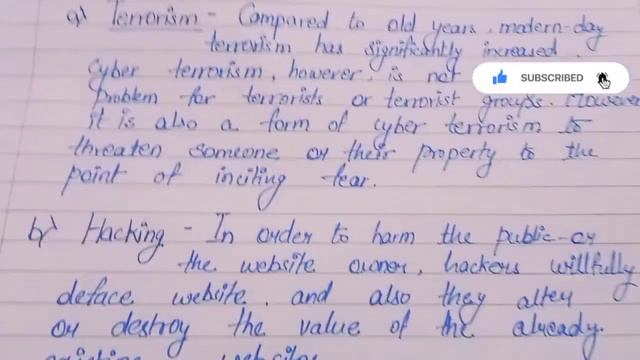 a) Terrorism - Compared to old years, modern-day
terrorism has significantly increased.
Cyber terrorism, however, is not
SUBSCRIBED
problem for terrorists or terrorist groups. However
it is also a form of cyber terrorism to
threaten someone or their property to the
point of inciting fear.
b) Hacking - In order to harm the public or
the website owner, hackers willfully
deface website, and also they alter
or destroy the value of the already
existing websites